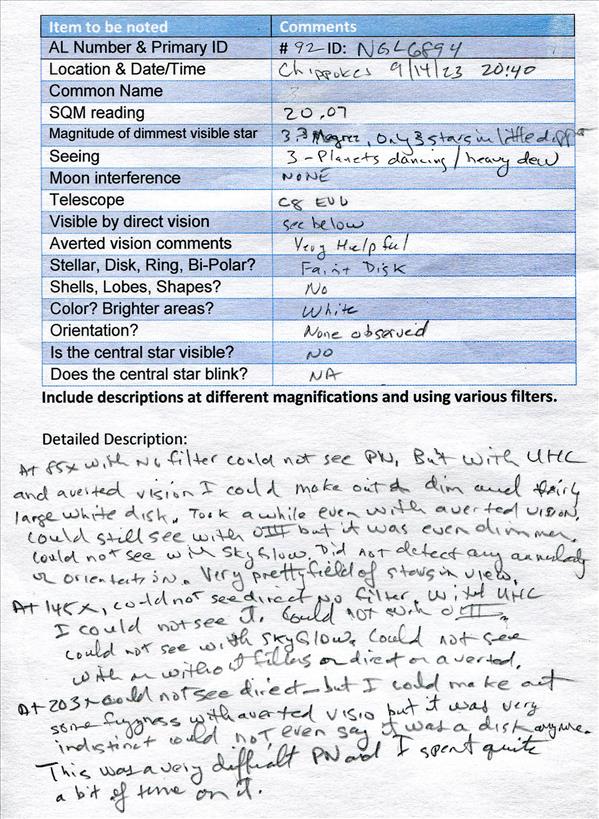 Item to be noted Comments
AL Number & Primary ID # 92 ID: NGC6894
Location & Date/Time Chippokes 9/14/23 20:40
Common Name ?
SQM reading 20.07
Magnitude of dimmest visible star 3.3 Megrez, Only 3 stars in little dipper
Seeing 3 - Planets dancing / heavy dew
Moon interference NONE
Telescope C8 EVO
Visible by direct vision see below
Averted vision comments Very Helpful
Stellar, Disk, Ring, Bi-Polar? Faint Disk
Shells, Lobes, Shapes? No
Color? Brighter areas? White
Orientation? None observed
Is the central star visible? NO
Does the central star blink? NA
Include descriptions at different magnifications and using various filters.
Detailed Description:
At 85x with No filter could not see PN, But with UHC
and averted vision I could make out a dim and fairly
large white disk. Took a while even with averted vision.
Could still see with OIII but it was even dimmer.
Could not see with SkyGlow. Did not detect any annularity
or orientation. Very pretty field of stars in view.
At 145x, could not see direct No filter, With UHC
I could not see it. Could not with OIII.
Could not see with SkyGlow. Could not see
with or without filters or direct or averted.
At 203x could not see direct - but I could make out
some fuzzness with averted visio but it was very
indistinct could not even say it was a disk anymore.
This was a very difficult PN and I spent quite
a bit of time on it.